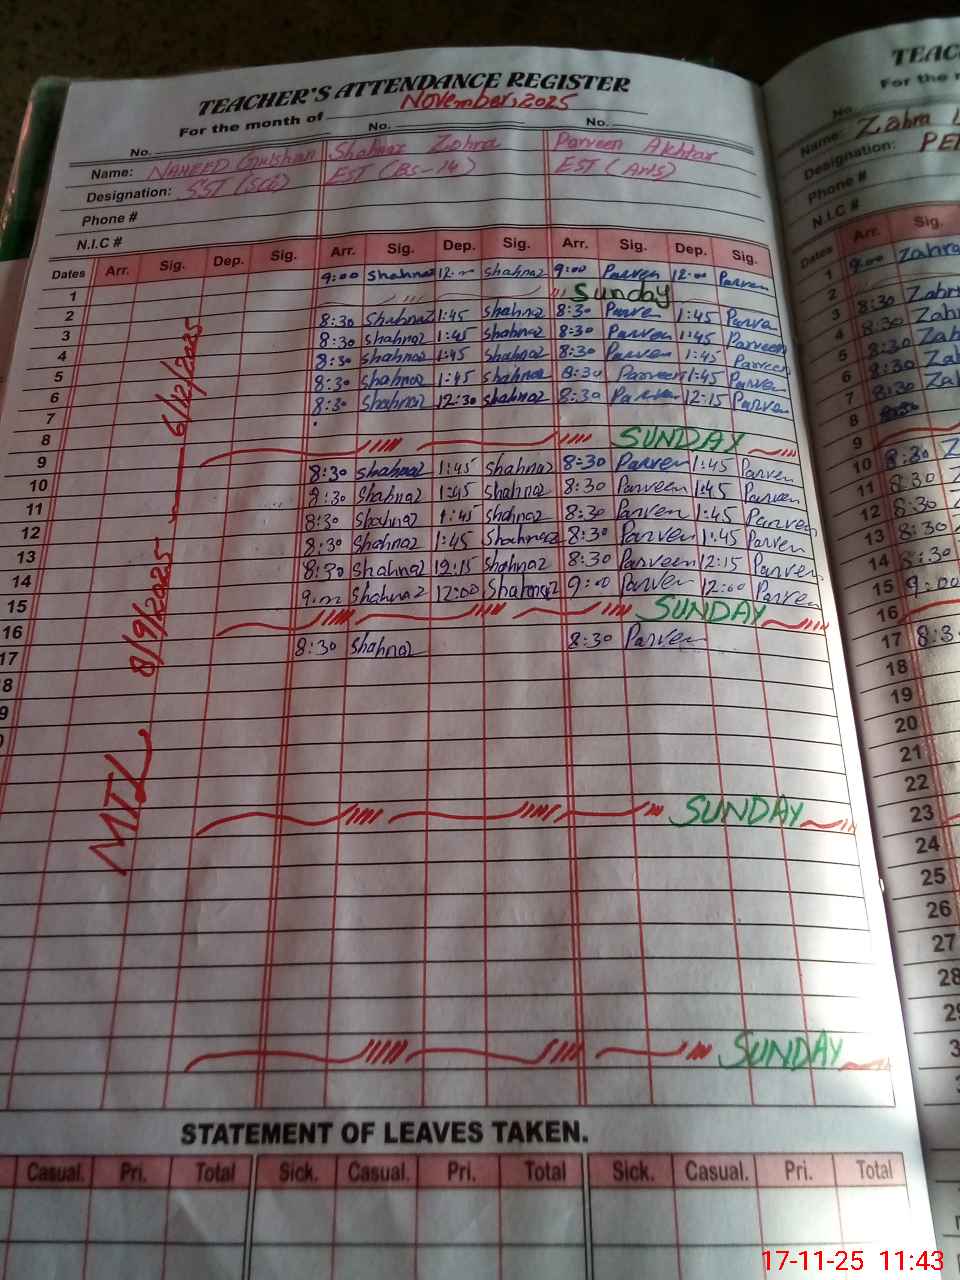 TEACHER'S ATTENDANCE REGISTER
For the month of November, 2025
No. No. No.
Name: NAHEED Gulshan Shahnaz Zohra Parveen Akhtar
Designation: SST (Sci) EST (BS-14) EST (Arts)
Phone #
N.I.C #
Dates Arr. Sig. Dep. Sig. Arr. Sig. Dep. Sig. Arr. Sig. Dep. Sig.
1 9:00 Shahnaz 12:00 Shahnaz 9:00 Parveen 12:00 Parveen
2 Sunday
3 8:30 Shahnaz 1:45 Shahnaz 8:30 Parveen 1:45 Parveen
4 8:30 Shahnaz 1:45 Shahnaz 8:30 Parveen 1:45 Parveen
5 8:30 Shahnaz 1:45 Shahnaz 8:30 Parveen 1:45 Parveen
6 8:30 Shahnaz 1:45 Shahnaz 8:30 Parveen 1:45 Parveen
7 8:30 Shahnaz 12:30 Shahnaz 8:30 Parveen 12:15 Parveen
8
9 SUNDAY
10 8:30 Shahnaz 1:45 Shahnaz 8:30 Parveen 1:45 Parveen
11 8:30 Shahnaz 1:45 Shahnaz 8:30 Parveen 1:45 Parveen
12 8:30 Shahnaz 1:45 Shahnaz 8:30 Parveen 1:45 Parveen
13 8:30 Shahnaz 1:45 Shahnaz 8:30 Parveen 1:45 Parveen
14 8:30 Shahnaz 12:15 Shahnaz 8:30 Parveen 12:15 Parveen
15 9:00 Shahnaz 12:00 Shahnaz 9:00 Parveen 12:00 Parveen
16 SUNDAY
17 8:30 Shahnaz 8:30 Parveen
SUNDAY
SUNDAY
MTL 8/9/2025 — 6/12/2025
STATEMENT OF LEAVES TAKEN.
Casual. Pri. Total Sick. Casual. Pri. Total Sick. Casual. Pri. Total
For the
No.
Name: Zahra
Designation:
Phone #
N.I.C #
Dates Arr. Sig.
1 9:00 Zahra
2
3 8:30
4 8:30
5 8:30
6 8:30
7 8:30
8
9
10 8:30
11 8:30
12 8:30
13 8:30
14 8:30
15 9:00
16
17
18
19
20
21
22
23
24
25
26
27
28
17-11-25 11:43